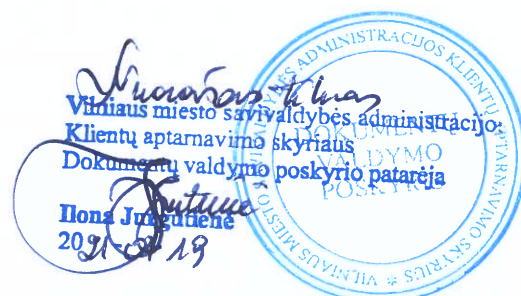 Nuorašas tikras
Vilniaus miesto savivaldybės administracijos
Klientų aptarnavimo skyriaus
Dokumentų valdymo poskyrio patarėja
Ilona Jungutienė
VILNIAUS MIESTO SAVIVALDYBĖS ADMINISTRACIJOS KLIENTŲ APTARNAVIMO SKYRIUS *
DOKUMENTŲ
VALDYMO
POSKYRIS